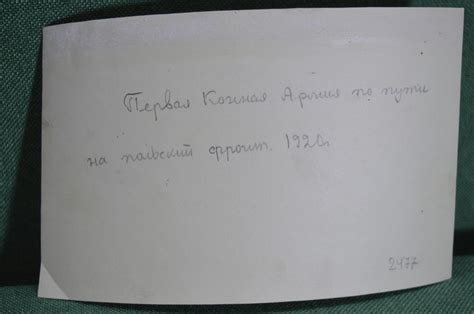 Первая Конная Армия по пути
на польский фронт. 1920г.
2477